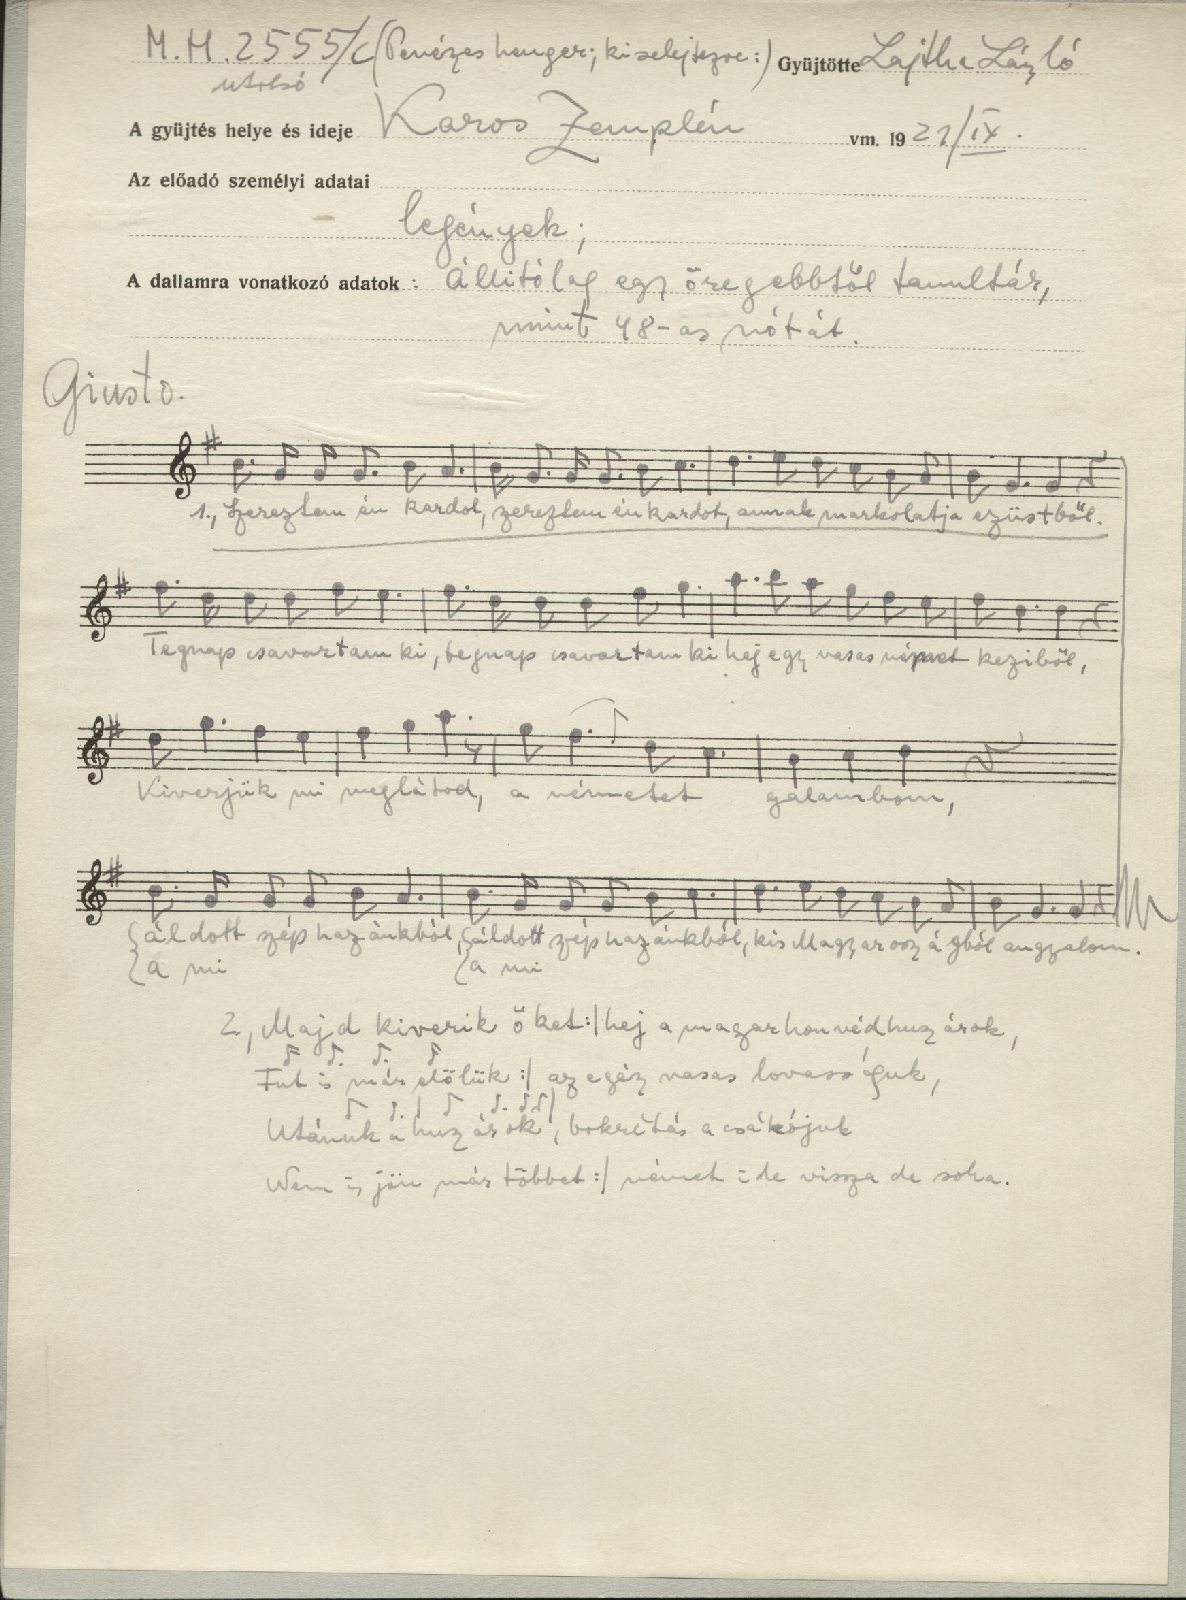 M.H. 2555/c (Penézes henger; kiselejtezve :) Gyüjtötte Lajtha László
utolsó
A gyüjtés helye és ideje Karos Zemplén vm. 1921/IX.
Az előadó személyi adatai
legények;
A dallamra vonatkozó adatok : Állitólag egy öregebbtől tanulták,
mint 48-as nótát.
Giusto.
1., Szereztem én kardot, szereztem én kardot, annak markolatja ezüstből.
Tegnap csavartam ki, tegnap csavartam ki hej egy vasas német keziből,
Kiverjük mi meglátod, a németet galambom,
áldott szép hazánkból, áldott szép hazánkból, kis Magyarországból angyalom.
a mi a mi
2, Majd kiverik őket :| hej a magyar honvéd huszárok,
Fut is már előlük :| az egész vasas lovasságuk,
Utánuk a huszárok, bokrétás a csákójuk
Nem is jön már többet :| német ide vissza de soha.